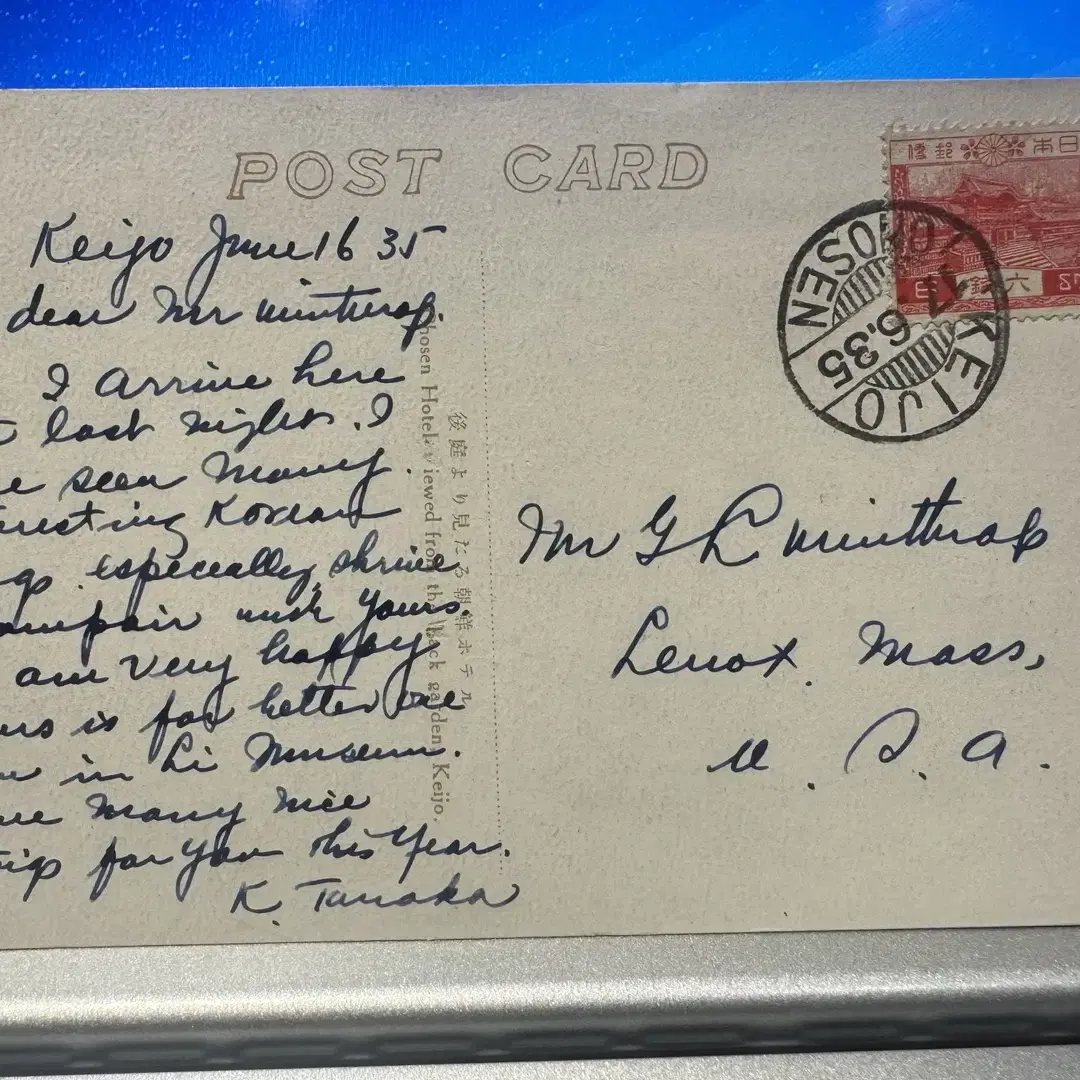 POST CARD
Keijo June 16 35
dear Mr Winthrop.
I arrive here
last night. I
seen many
Korean
especially, shrine
yours.
am very happy
is far better one
in Li Museum.
many nice
for you this year.
K. Tanaka
後庭より見たる朝鮮ホテル
Chosen Hotel viewed from the back garden, Keijo.
日本郵便
六銭
KEIJO
CHOSEN
17
6.35
Mr G L Winthrop
Lenox. Mass,
U. S. A.